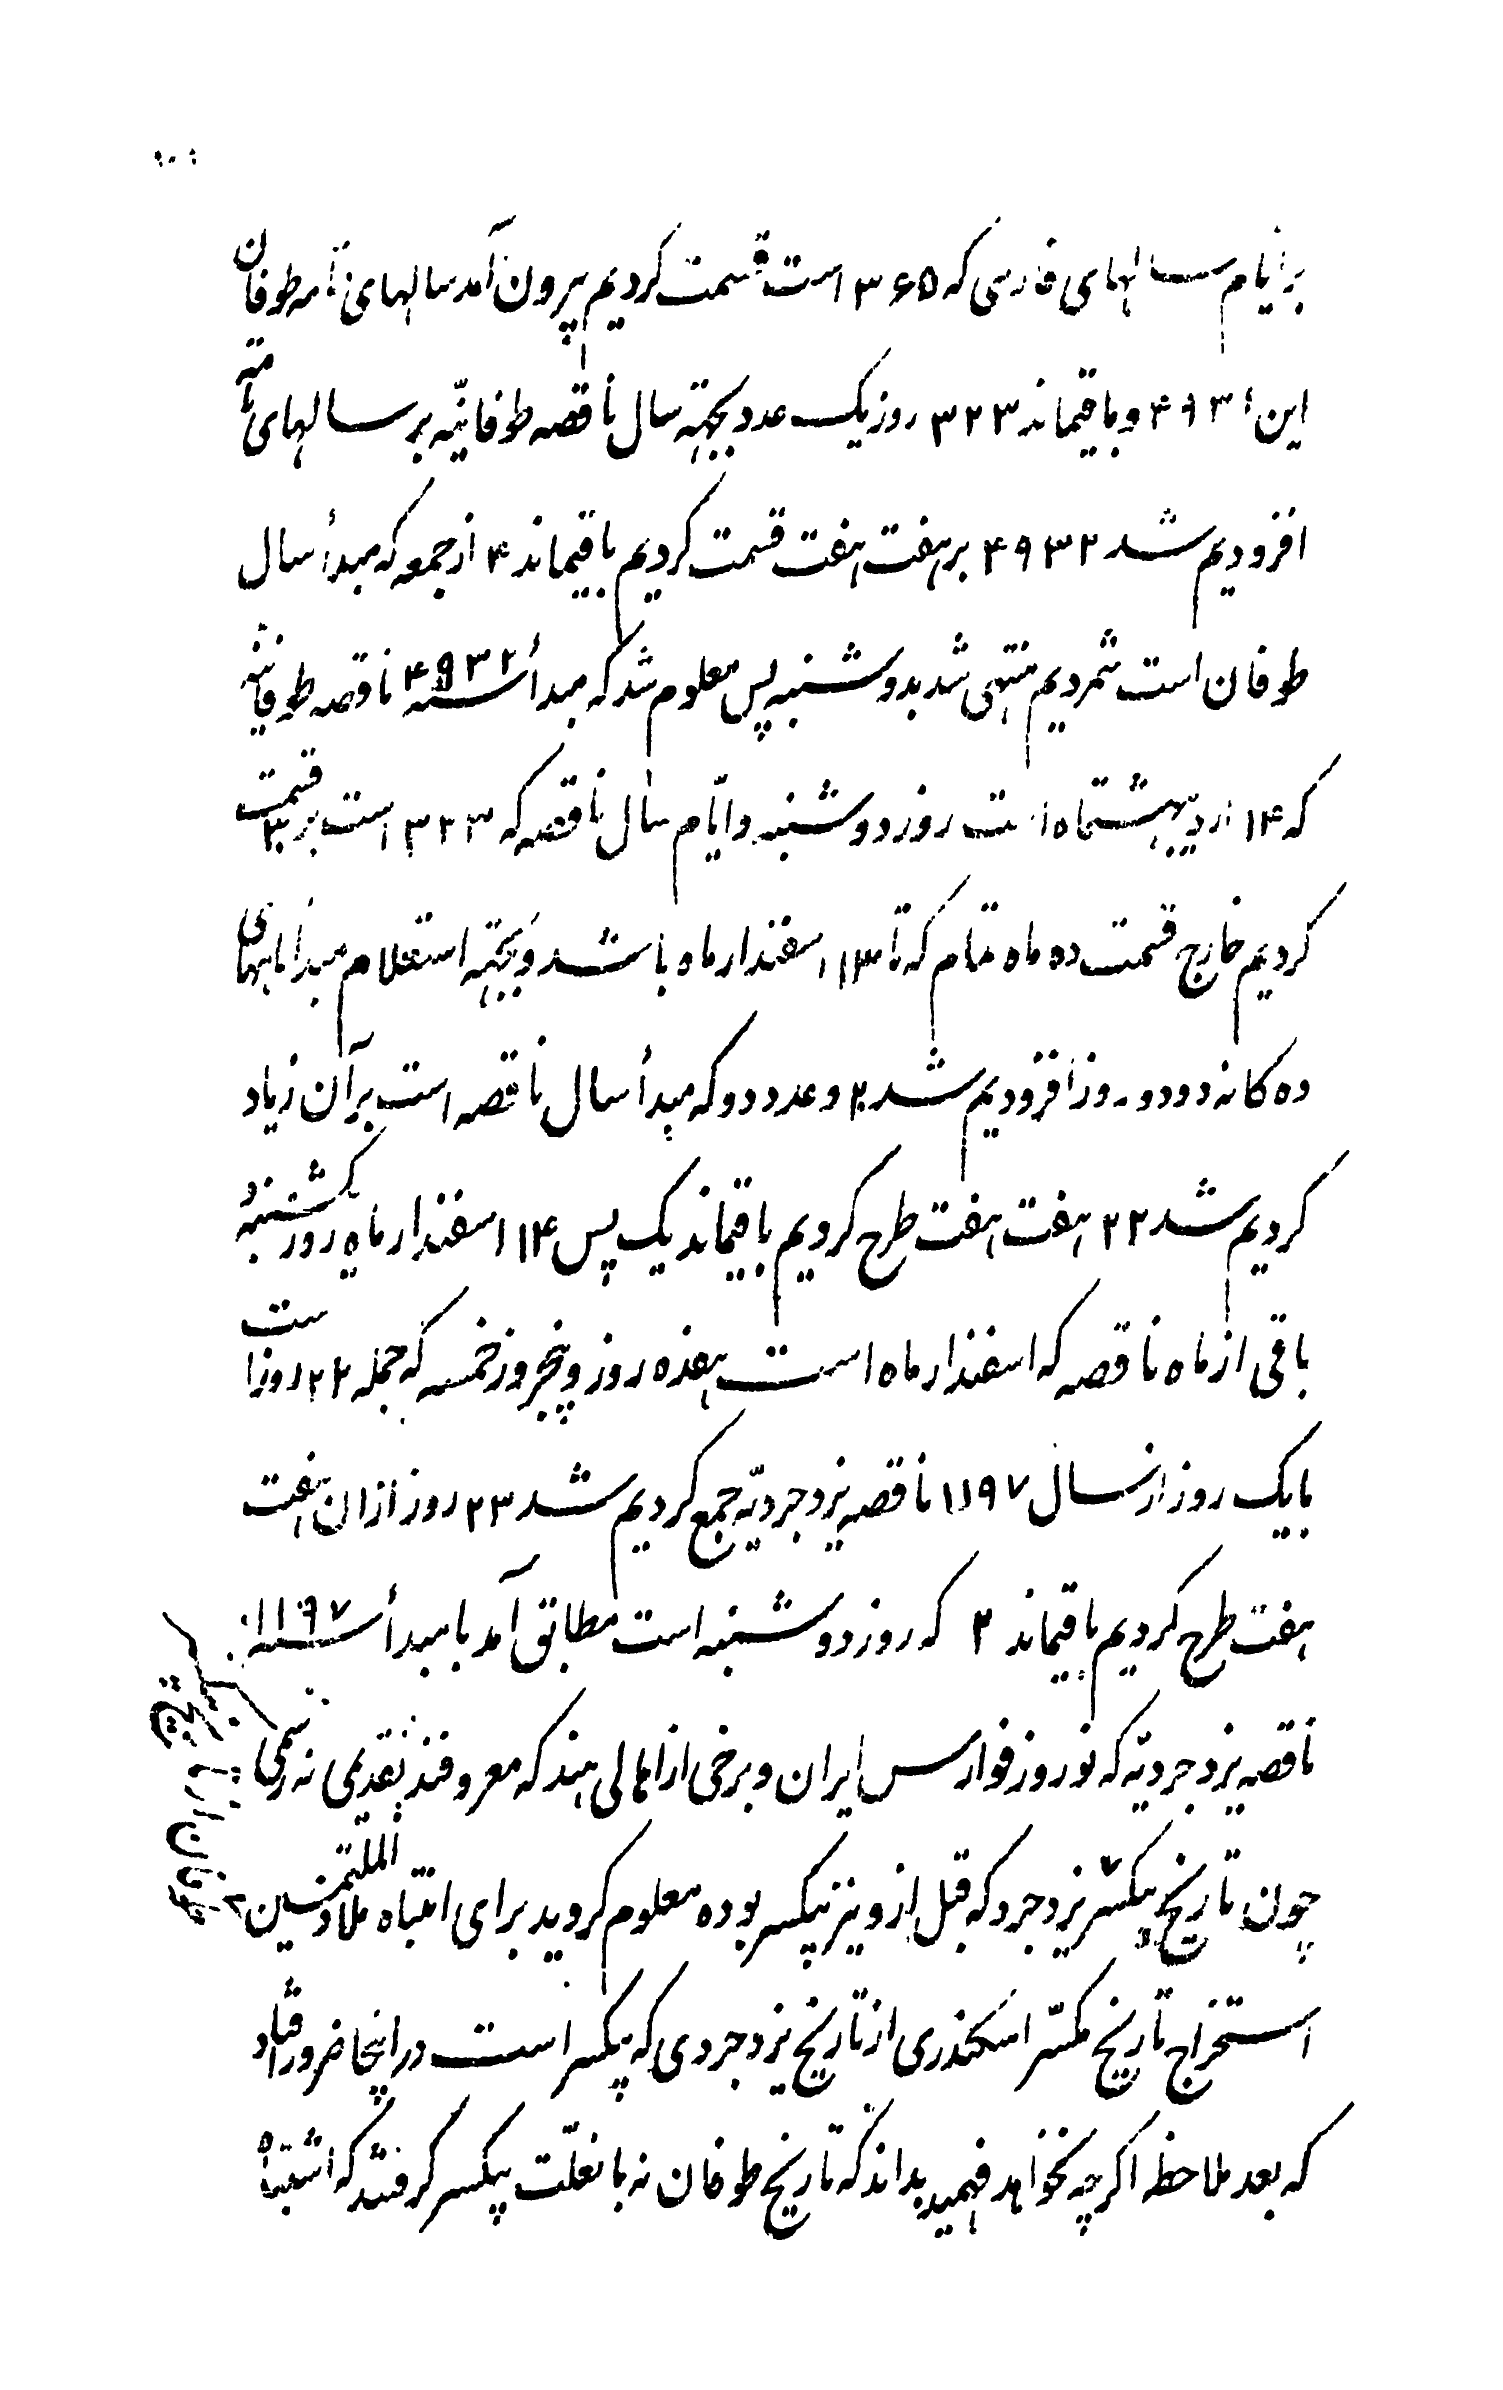 بر ایام سالهای فارسی که ۳۶۵ است قسمت کردیم بیرون آمد سالهای تامه طوفان
این ۴۹۳۱ و باقیماند ۳۲۳ روز یک عدد بجهته سال ناقصه طوفانیّه بر سالهای تامه
افزودیم شد ۴۹۳۲ بر هفت هفت قسمت کردیم باقیماند ۴ از جمعه که مبدأ سال
طوفان است شمردیم منتهی شد بدوشنبه پس معلوم شد که مبدأ سنه ۴۹۳۲ ناقصه طوفانیه
که ۱۴ اردیبهشتماه است روز دوشنبه و ایّام سال ناقصه که ۳۲۳ است بر ۳۰ قسمت
کردیم خارج قسمت ده ماه تمام که تا ۱۳ اسفندارماه باشد و بجهته استعلام مبدأ ماههای
ده کانه دو دو روز افزودیم شد ۲۰ و عدد دو که مبدأ سال ناقصه است بر آن زیاد
کردیم شد ۲۲ هفت هفت طرح کردیم باقیماند یک پس ۱۴ اسفندارماه روز یکشنبه و
باقی از ماه ناقصه که اسفندارماه است هفده روز و پنجروز خمسه که جمله ۲۲ روز است
با یک روز از سال ۱۱۹۷ ناقصه یزدجردیّه جمع کردیم شد ۲۳ روز از ان هفت
هفت طرح کردیم باقیماند ۲ که روز دوشنبه است مطابق آمد با مبدأ سنه ۱۱۹۷
ناقصه یزدجردیّه که نوروز فوارس ایران و برخی از اهالی هند که معروفند بقدیمی نه رسمی
چون تاریخ بیکسر یزدجرد که قبل از و نیز بیکسر بوده معلوم کردید برای انتباه ملا‌ء الملتمسین
استخراج تاریخ مکسّر اسکندری از تاریخ یزدجردی که بیکسر است در اینجا ضرور افتاد
که بعد ملاحظه اکرچه نخواهد فهمید بداند که تاریخ طوفان نه بانعلّت بیکسر کرفتند که اشتباه
طوفان از تاریخ